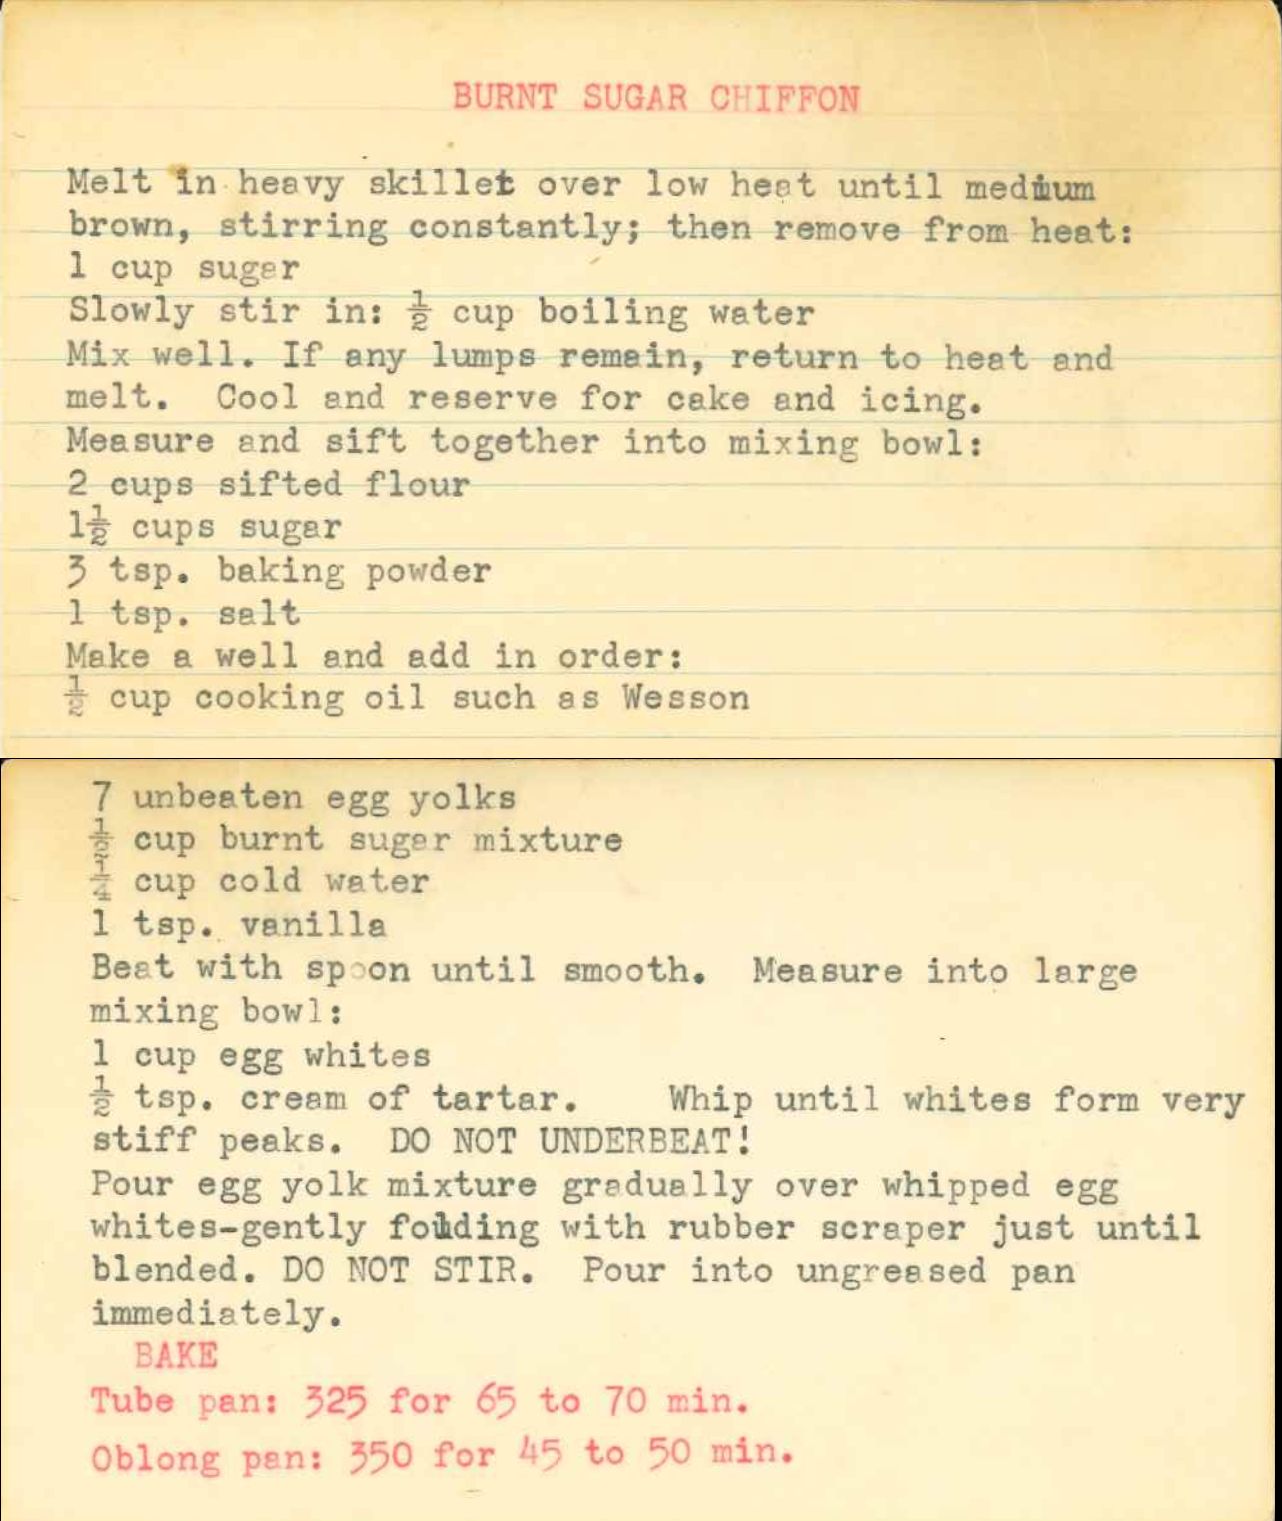 BURNT SUGAR CHIFFON
Melt in heavy skillet over low heat until medium
brown, stirring constantly; then remove from heat:
1 cup sugar
Slowly stir in: ½ cup boiling water
Mix well. If any lumps remain, return to heat and
melt. Cool and reserve for cake and icing.
Measure and sift together into mixing bowl:
2 cups sifted flour
1½ cups sugar
3 tsp. baking powder
1 tsp. salt
Make a well and add in order:
½ cup cooking oil such as Wesson
7 unbeaten egg yolks
½ cup burnt sugar mixture
¼ cup cold water
1 tsp. vanilla
Beat with spoon until smooth. Measure into large
mixing bowl:
1 cup egg whites
½ tsp. cream of tartar. Whip until whites form very
stiff peaks. DO NOT UNDERBEAT!
Pour egg yolk mixture gradually over whipped egg
whites-gently folding with rubber scraper just until
blended. DO NOT STIR. Pour into ungreased pan
immediately.
BAKE
Tube pan: 325 for 65 to 70 min.
Oblong pan: 350 for 45 to 50 min.